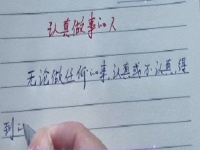 认真做事的人
无论做任何的事,认真或不认真,得
到的